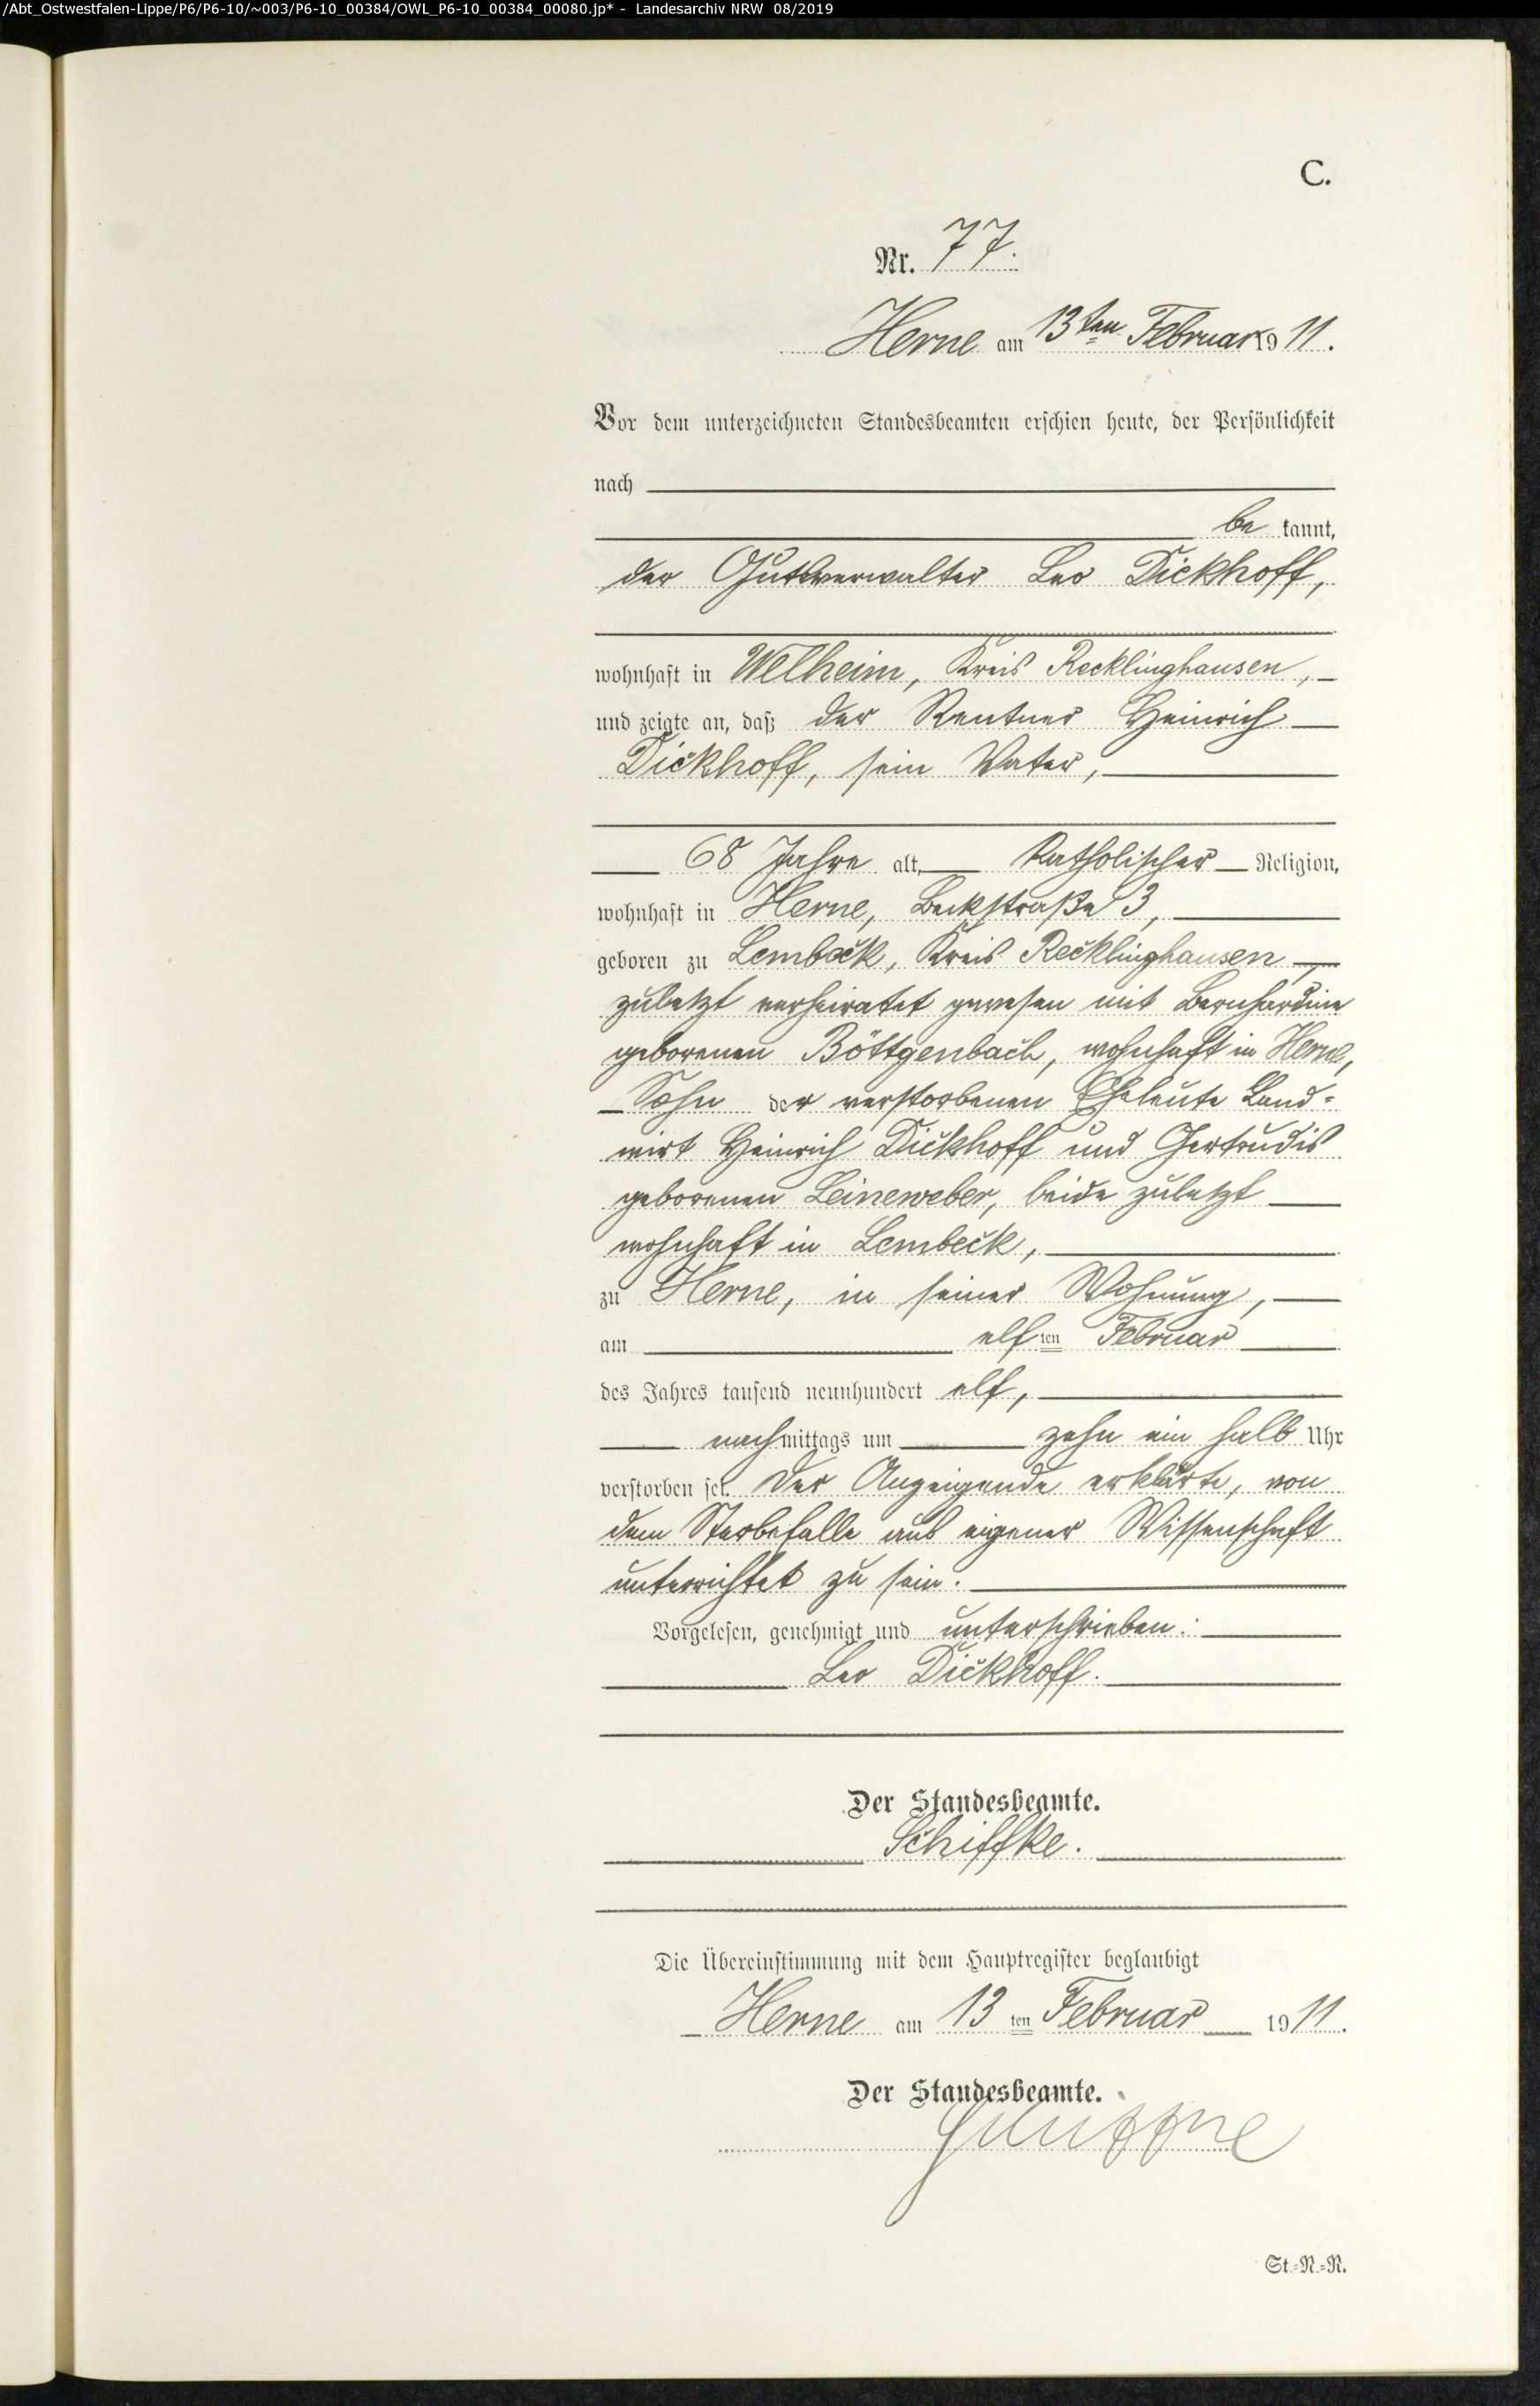 /Abt_Ostwestfalen-Lippe/P6/P6-10/~003/P6-10_00384/OWL_P6-10_00384_00080.jp* - Landesarchiv NRW 08/2019
C.
Nr. 77.
Herne am 13ten Februar 1911.
Vor dem unterzeichneten Standesbeamten erschien heute, der Persönlichkeit
nach
be kannt,
der Gutsverwalter Leo Dickhoff,
wohnhaft in Welheim, Kreis Recklinghausen,
und zeigte an, daß der Rentner Heinrich
Dickhoff, sein Vater,
68 Jahre alt, katholischer Religion,
wohnhaft in Herne, Beckstraße 3,
geboren zu Lembeck, Kreis Recklinghausen,
zuletzt verheiratet gewesen mit Bernhardine
geborenen Böttgenbach, wohnhaft in Herne,
Sohn der verstorbenen Eheleute Land-
wirt Heinrich Dickhoff und Gertrudis
geborenen Leineweber, beide zuletzt
wohnhaft in Lembeck,
zu Herne, in seiner Wohnung,
am elften Februar
des Jahres tausend neunhundert elf,
nachmittags um zehn ein halb Uhr
verstorben sei. Der Anzeigende erklärte, von
dem Sterbefalle aus eigener Wissenschaft
unterrichtet zu sein.
Vorgelesen, genehmigt und unterschrieben:
Leo Dickhoff.
Der Standesbeamte.
Schiffke.
Die Übereinstimmung mit dem Hauptregister beglaubigt
Herne am 13ten Februar 1911.
Der Standesbeamte.
Schiffke
St.-N.-R.